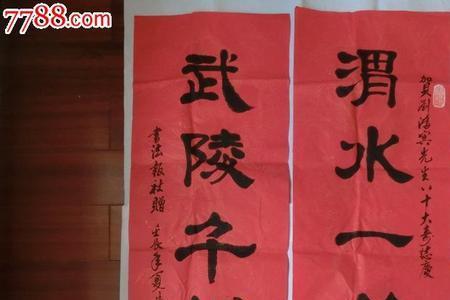 7788.com
賀劉賓先生八十大壽誌慶
渭水一
武陵千
書法報社贈 壬辰年夏